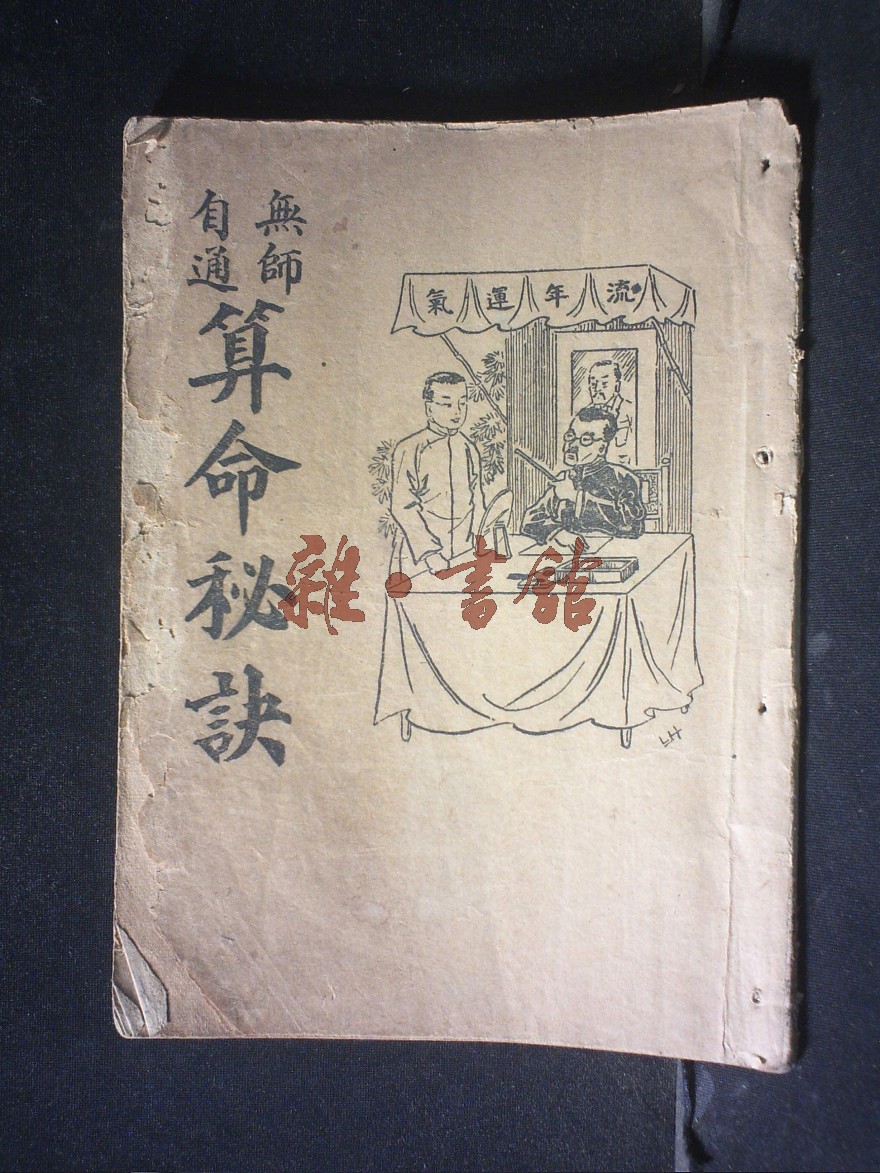 無師
自通
算命秘訣
流年運氣
雜·書館
LH